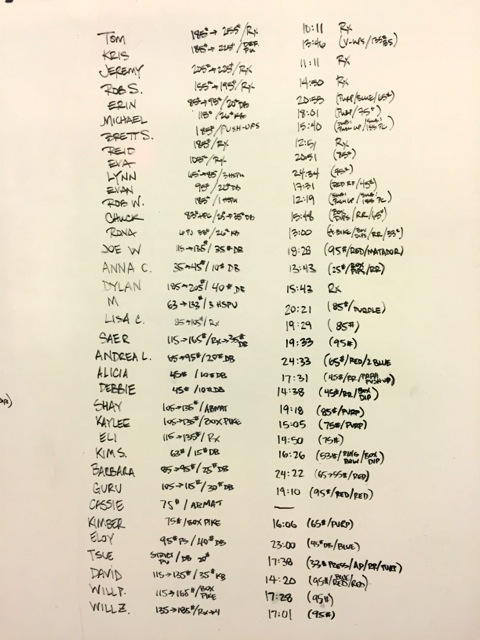 TOM 185# → 255#/RX 10:11 RX
KRIS 185# → 225#/DEF. 13:46 (V-UPS/135#
JEREMY 205# → 225#/RX 11:11 RX
ROB S. 155# → 195#/RX 14:50 RX
ERIN 85# → 95#/20# DB 20:55 (PURP/BLUE/65#)
MICHAEL 115#/26# KB 18:01 (PURP/75#)
BRETT S. 185#/PUSH-UPS 15:40
REID 185#/RX 12:51 RX
EVA 105#/RX 20:51 (85#)
LYNN 65 → 85/3 HSPU 24:34 (95#)
EVAN 95#/20# DB 17:31 (RED RF/45#)
ROB W. 185#/1 HSPU 12:19
CHUCK 25 → 35# DB 15:48 (BOX DIPS/RR/65#)
RONA 26# KB 13:00 BIKE/BOX DIPS/RR/33#)
JOE W 115 → 135#/35# DB 18:28 (95#/RED/MATADOR)
ANNA C. 35 → 45#/10# DB 13:43 (25#/BOX /RR)
DYLAN 185 → 205#/40# DB 15:43 RX
M 63 → 132#/3 HSPU 20:21 (85#/PURPLE)
LISA C. 85 → 105#/RX 19:29 (85#)
SAER 115 → 165#/RX → 35# DB 19:33 (95#)
ANDREA L. 65 → 95#/20# DB 24:33 (65#/RED/2 BLUE
ALICIA 45#/10# DB 17:31 (45#/RR/ PUSH-UP)
DEBBIE 45#/10# DB 14:38 (45#/RR/BOX DIP)
SHAY 105 → 135#/ABMAT 19:18 (85#/PURP)
KAYLEE 105 → 135#/BOX PIKE 15:05 (75#/PURP)
ELI 115 → 135#/RX 19:50 (75#)
KIM S. 63#/15# DB 16:26 (53#/RING ROW/BOX DIP)
BARBARA 85 → 95#/25# DB 24:22 (65 → 55#/RED)
GURU 105 → 115#/30# DB 19:10 (95#/RED/RED)
CASSIE 75#/ABMAT —
KIMBER 75#/BOX PIKE 16:06 (65#/PURP)
ELOY 95# PS/40# DB 23:00 (45# DB/BLUE)
TSUE STRICT PU/DB 20# 17:38 (33# PRESS/AP/RR/PURP)
DAVID 115 → 135#/35# KB 14:20 (95#/BLUE RED/RED)
WILL P. 115 → 165#/BOX PIKE 17:28 (95#)
WILL Z. 135 → 185#/RX → 4 17:01 (95#)